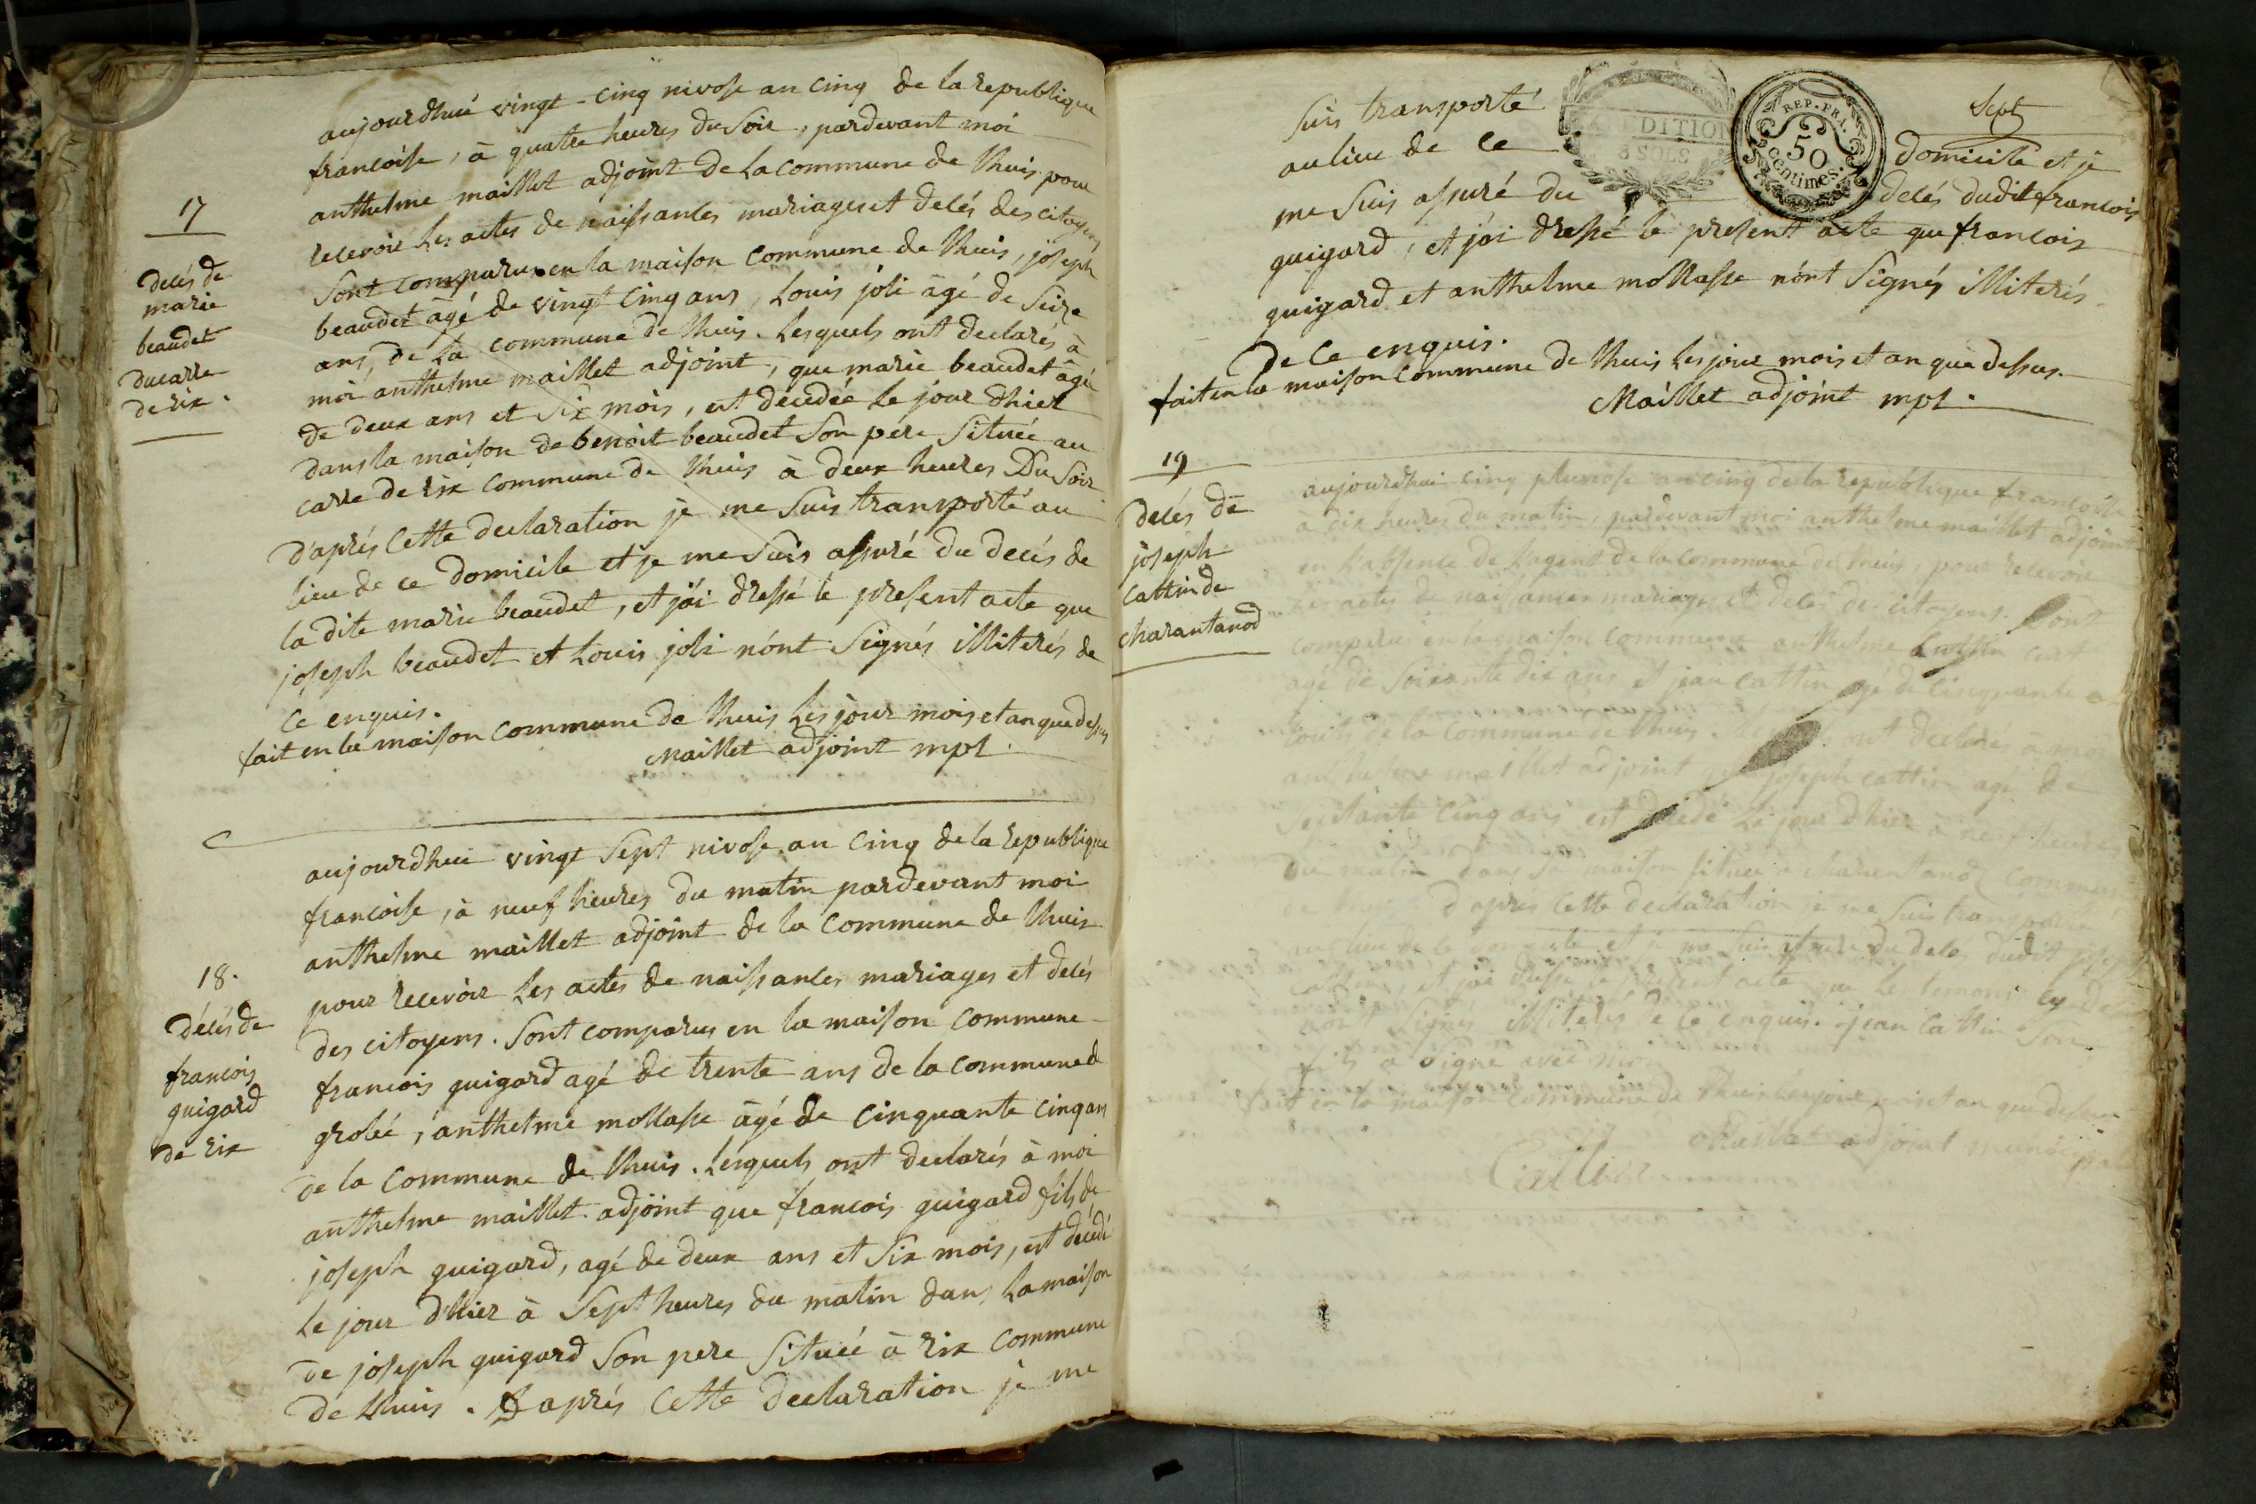 17
decés de
marie
beaudet
ducarre
de rix.
aujourdhui vingt-cinq nivose an cinq de la republique
francoise, à quatre heures du soir, pardevant moi
anthelme maillet adjoint de la commune de lhuis, pour
recevoir les actes de naissances mariages et decés des citoyens
Sont comparus en la maison commune de lhuis, joseph
beaudet âgé de vingt cinq ans, Louis joli âgé de seize
ans, de la commune de lhuis. Lesquels ont declarés à
moi anthelme maillet adjoint, que marie beaudet âgée
de deux ans et six mois, est decedée le jour dhier
dans la maison de benoit beaudet son pere située au
carre de rix commune de lhuis à deux heures du soir
d'aprés cette declaration je me suis transporté au
lieu de ce domicile et je me suis assuré du decés de
la dite marie beaudet, et j'ai dressé le present acte que
joseph beaudet et Louis joli n'ont signés illiterés de
ce enquis.
fait en la maison commune de lhuis les jour mois et an que dessus
Maillet adjoint mpl.
18.
décés de
francois
guigard
de rix
aujourdhui vingt sept nivose an cinq de la republique
francoise, à neuf heures du matin pardevant moi
anthelme maillet adjoint de la commune de lhuis
pour recevoir les actes de naissances mariages et decés
des citoyens. Sont comparus en la maison commune
francois guigard agé de trente ans de la commune de
grolée, anthelme mollasse âgé de cinquante cinq ans
de la commune de lhuis. Lesquels ont declarés à moi
anthelme maillet adjoint que francois guigard fils de
joseph guigard, agé de deux ans et six mois, est décédé
le jour d'hier à sept heures du matin dans la maison
de joseph guigard son pere située à rix commune
de lhuis. D'aprés cette declaration je me
Sept
REP. FRA.
50
centimes.
suis transporté
au lieu de ce domicile et je
me suis assuré du decés dudit francois
guigard, et j'ai dressé le present acte que francois
guigard et anthelme mollasse n'ont signés illiterés
de ce enquis.
fait en la maison commune de lhuis les jour mois et an que dessus.
Maillet adjoint mpl.
19
decés de
joseph
cattin de
charantanod
aujourdhui cinq pluviose an cinq de la republique francoise
à dix heures du matin, pardevant moi anthelme maillet adjoint
en l'absence de l'agent de la commune de lhuis, pour recevoir
les actes de naissances mariages et decés des citoyens. Sont
comparus en la maison commune anthelme
agé de soixante dix ans et jean cattin agé de cinquante
touts de la commune de lhuis. ont declarés à moi
anthelme maillet adjoint que joseph cattin agé de
septante cinq ans est decedé le jour dhier à neuf heures
du matin dans sa maison située à charentanod commune
d'apres cette declaration je me suis transporté
au lieu de ce domicile et je me suis assuré du deces dudit joseph
cattin, et j'ai dressé le present acte que les temoins
n'ont signés illiterés de ce enquis. jean cattin son
fils a signé avec moi
fait en la maison commune de lhuis les jour mois et an que dessus
Maillet adjoint municipal
Cattin